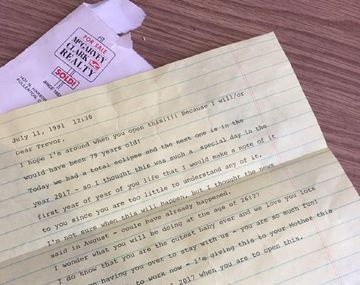 FOR SALE
McGARVEY
CLARK
REALTY
SOLD!
July 11, 1991 12:30
Dear Trevor,
I hope I'm around when you open this!!!! Because I will/or
would have been 79 years old!
Today we had a total eclipse and the next one is in the
year 2017 - so I thought this was such a special day in the
first year of year of you life that I would make a note of it
to you since you are too little to understand any of it.
I'm not sure when this will happen, but I thought the news
said in August - could have already happened.
I wonder what you will be doing at the age of 26???
I do know that you are the cutest baby ever and we love you lots
having you over to stay with us - you are so much fun!
to work now - I'm giving this to your Mother this
2017 when you are to open this.